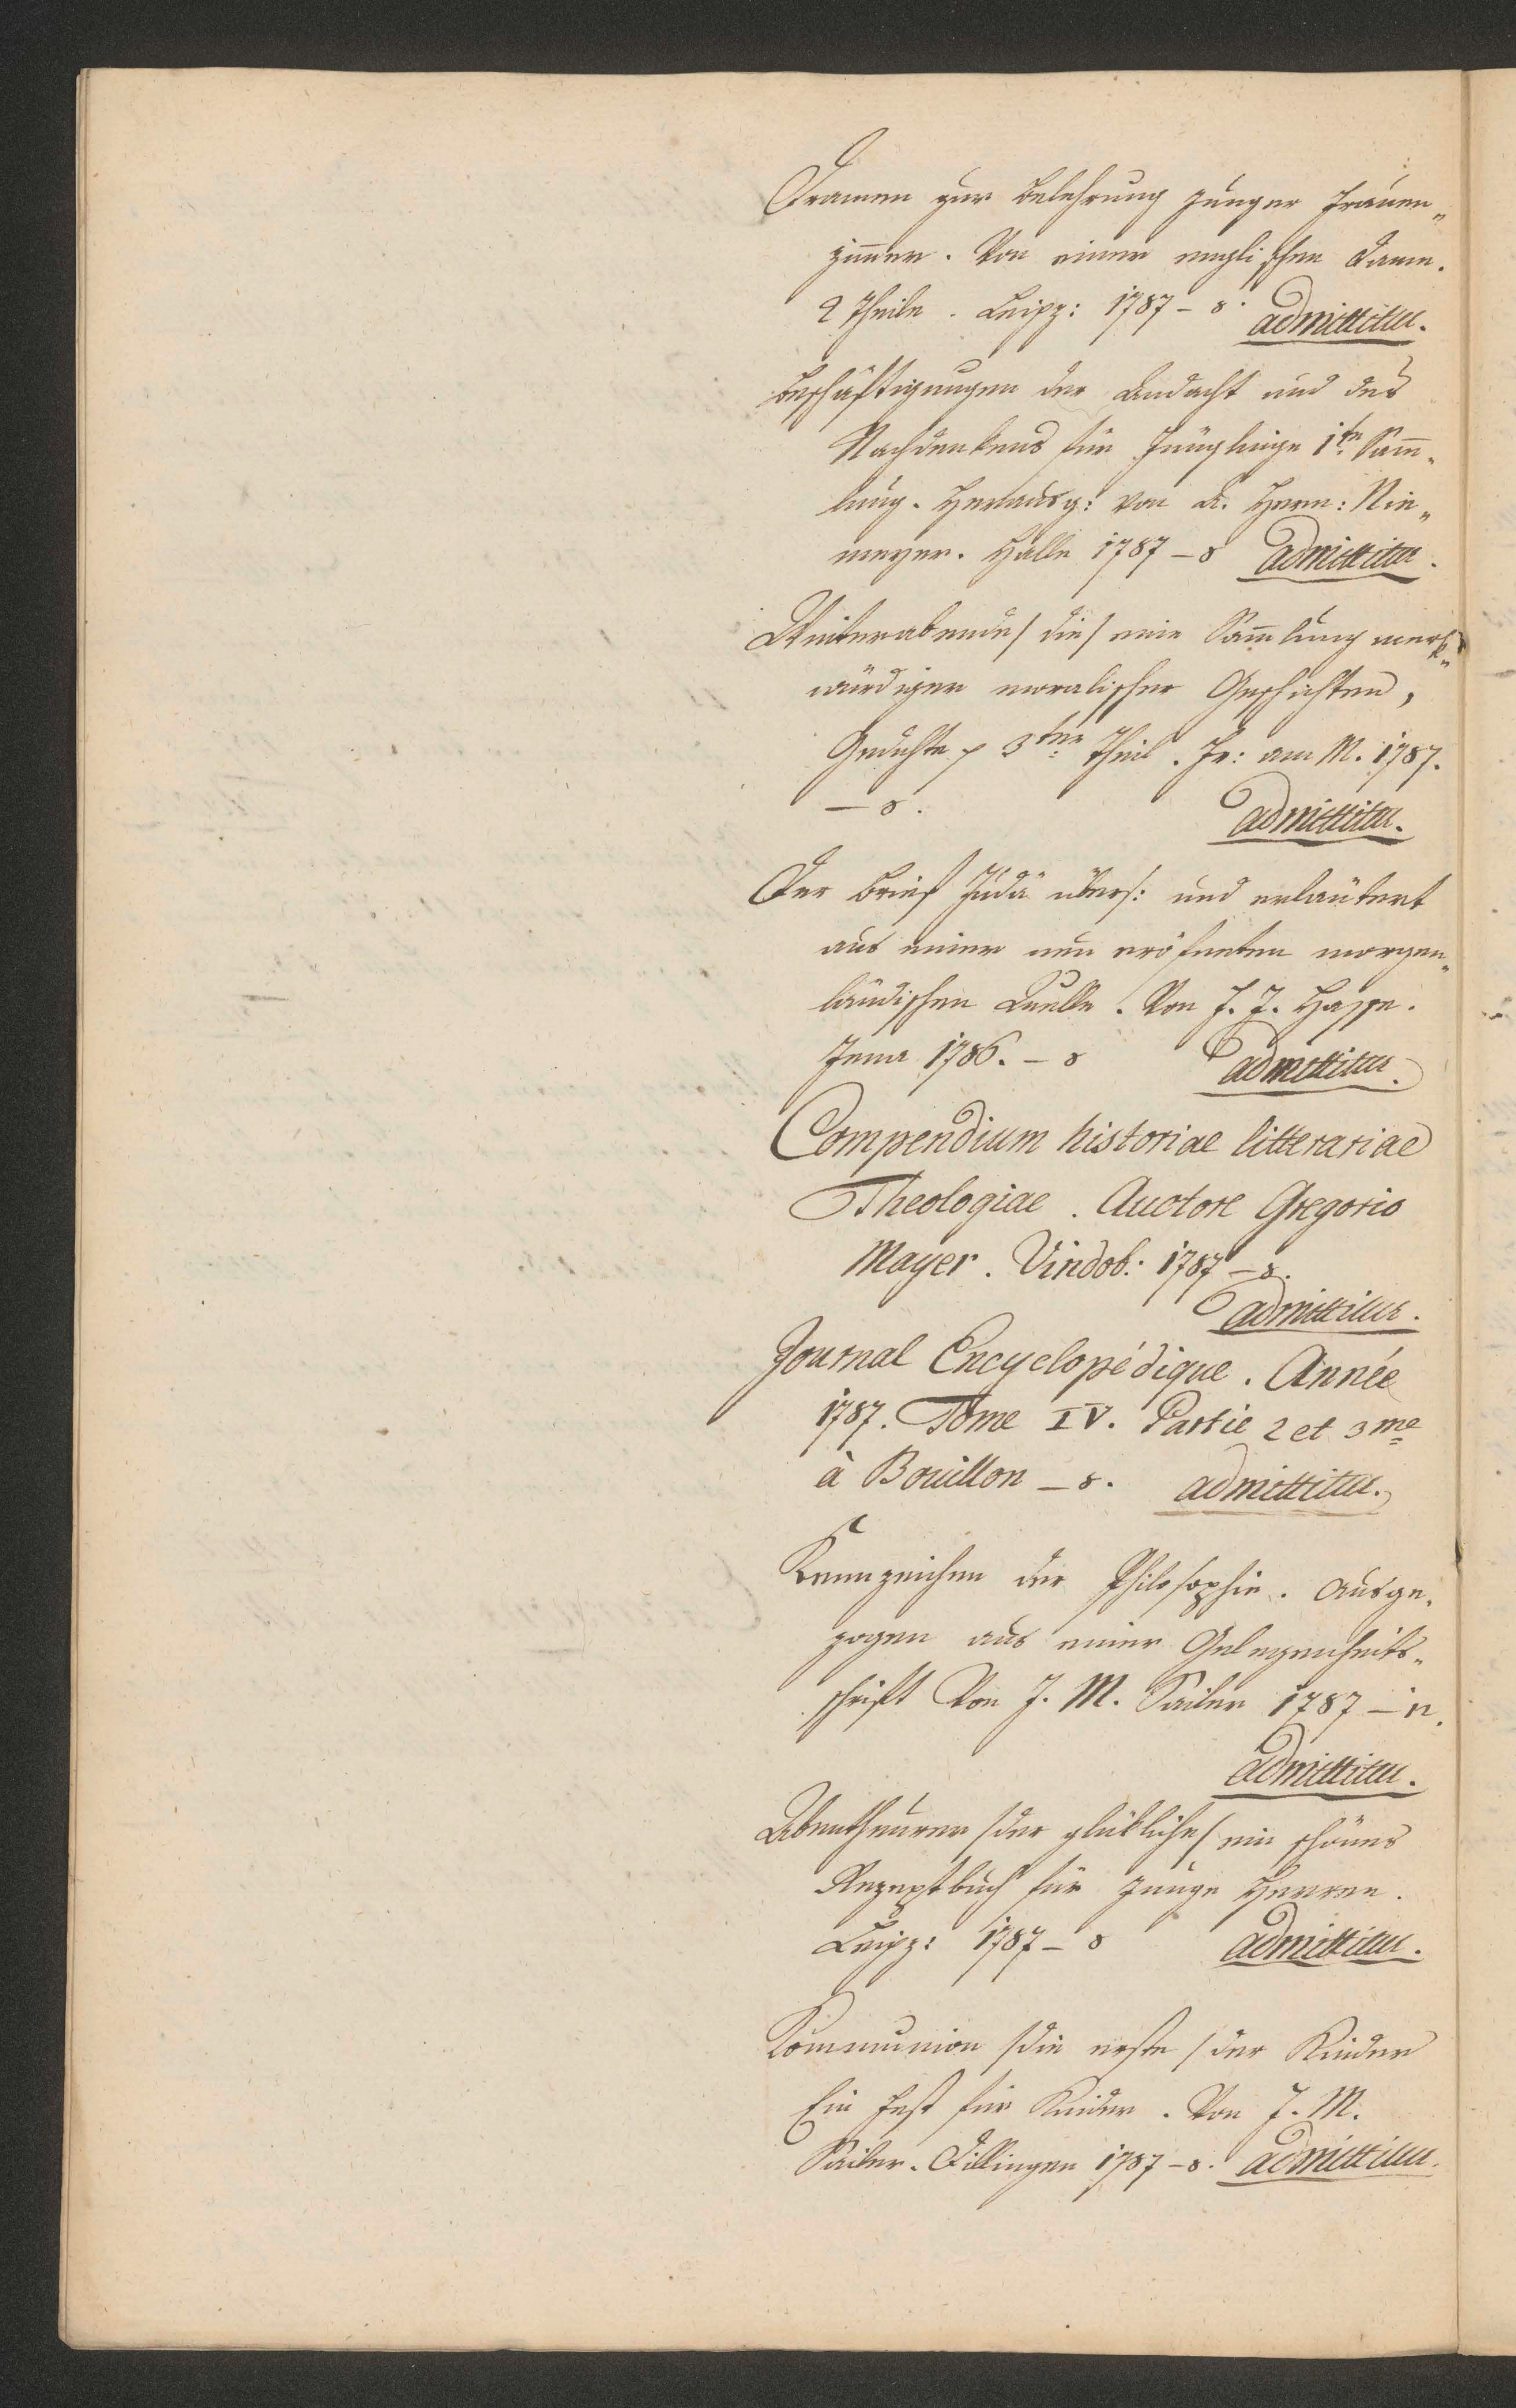 Dramen zur Belehrung junger Frauen„
zim̅er. Von einer englischen Dame.
2 Theile. Leipz: 1787 – 8. admittitur.
Beschäftigungen der Andacht und des
Nachdenkens für Jünglinge 1te Sam̅„
lung. Herausg: von A. Herm: Nie„
meyer. Halle 1787 – 8 admittitur.
Winterabende / die / eine Sam̅lung merk„
würdiger moralischer Geschichten,
Gedichte p 3ter Theil. Fr: am M. 1787.
– 8. admittitur.
Der Brief Judä übers: und erläutert
aus einer neu eröfneten morgen„
ländischen Quelle. Von J. J. Hasse.
Jena 1786. – 8 admittitur.
Compendium historiae litterariae
Theologiae. Auctore Gregorio
Mayer. Vindob: 1787 – 8.
admittitur.
Journal Encyclopédique. Année
1787. Tome IV. Partie 2 et 3me
à Bouillon – 8. admittitur.
Kennzeichen der Philosophie. Ausge„
zogen aus einer Gelegenheits„
schrift Von J. M. Sailer 1787 – 12.
admittitur.
Abentheurer / der glükliche / ein schönes
Rezeptbuch für junge Herren.
Leipz: 1787 – 8 admittitur.
Communion / die erste / der Kinder
Ein Fest für Kinder. Von J. M.
Sailer. Dillingen 1787 – 8. admittitur.